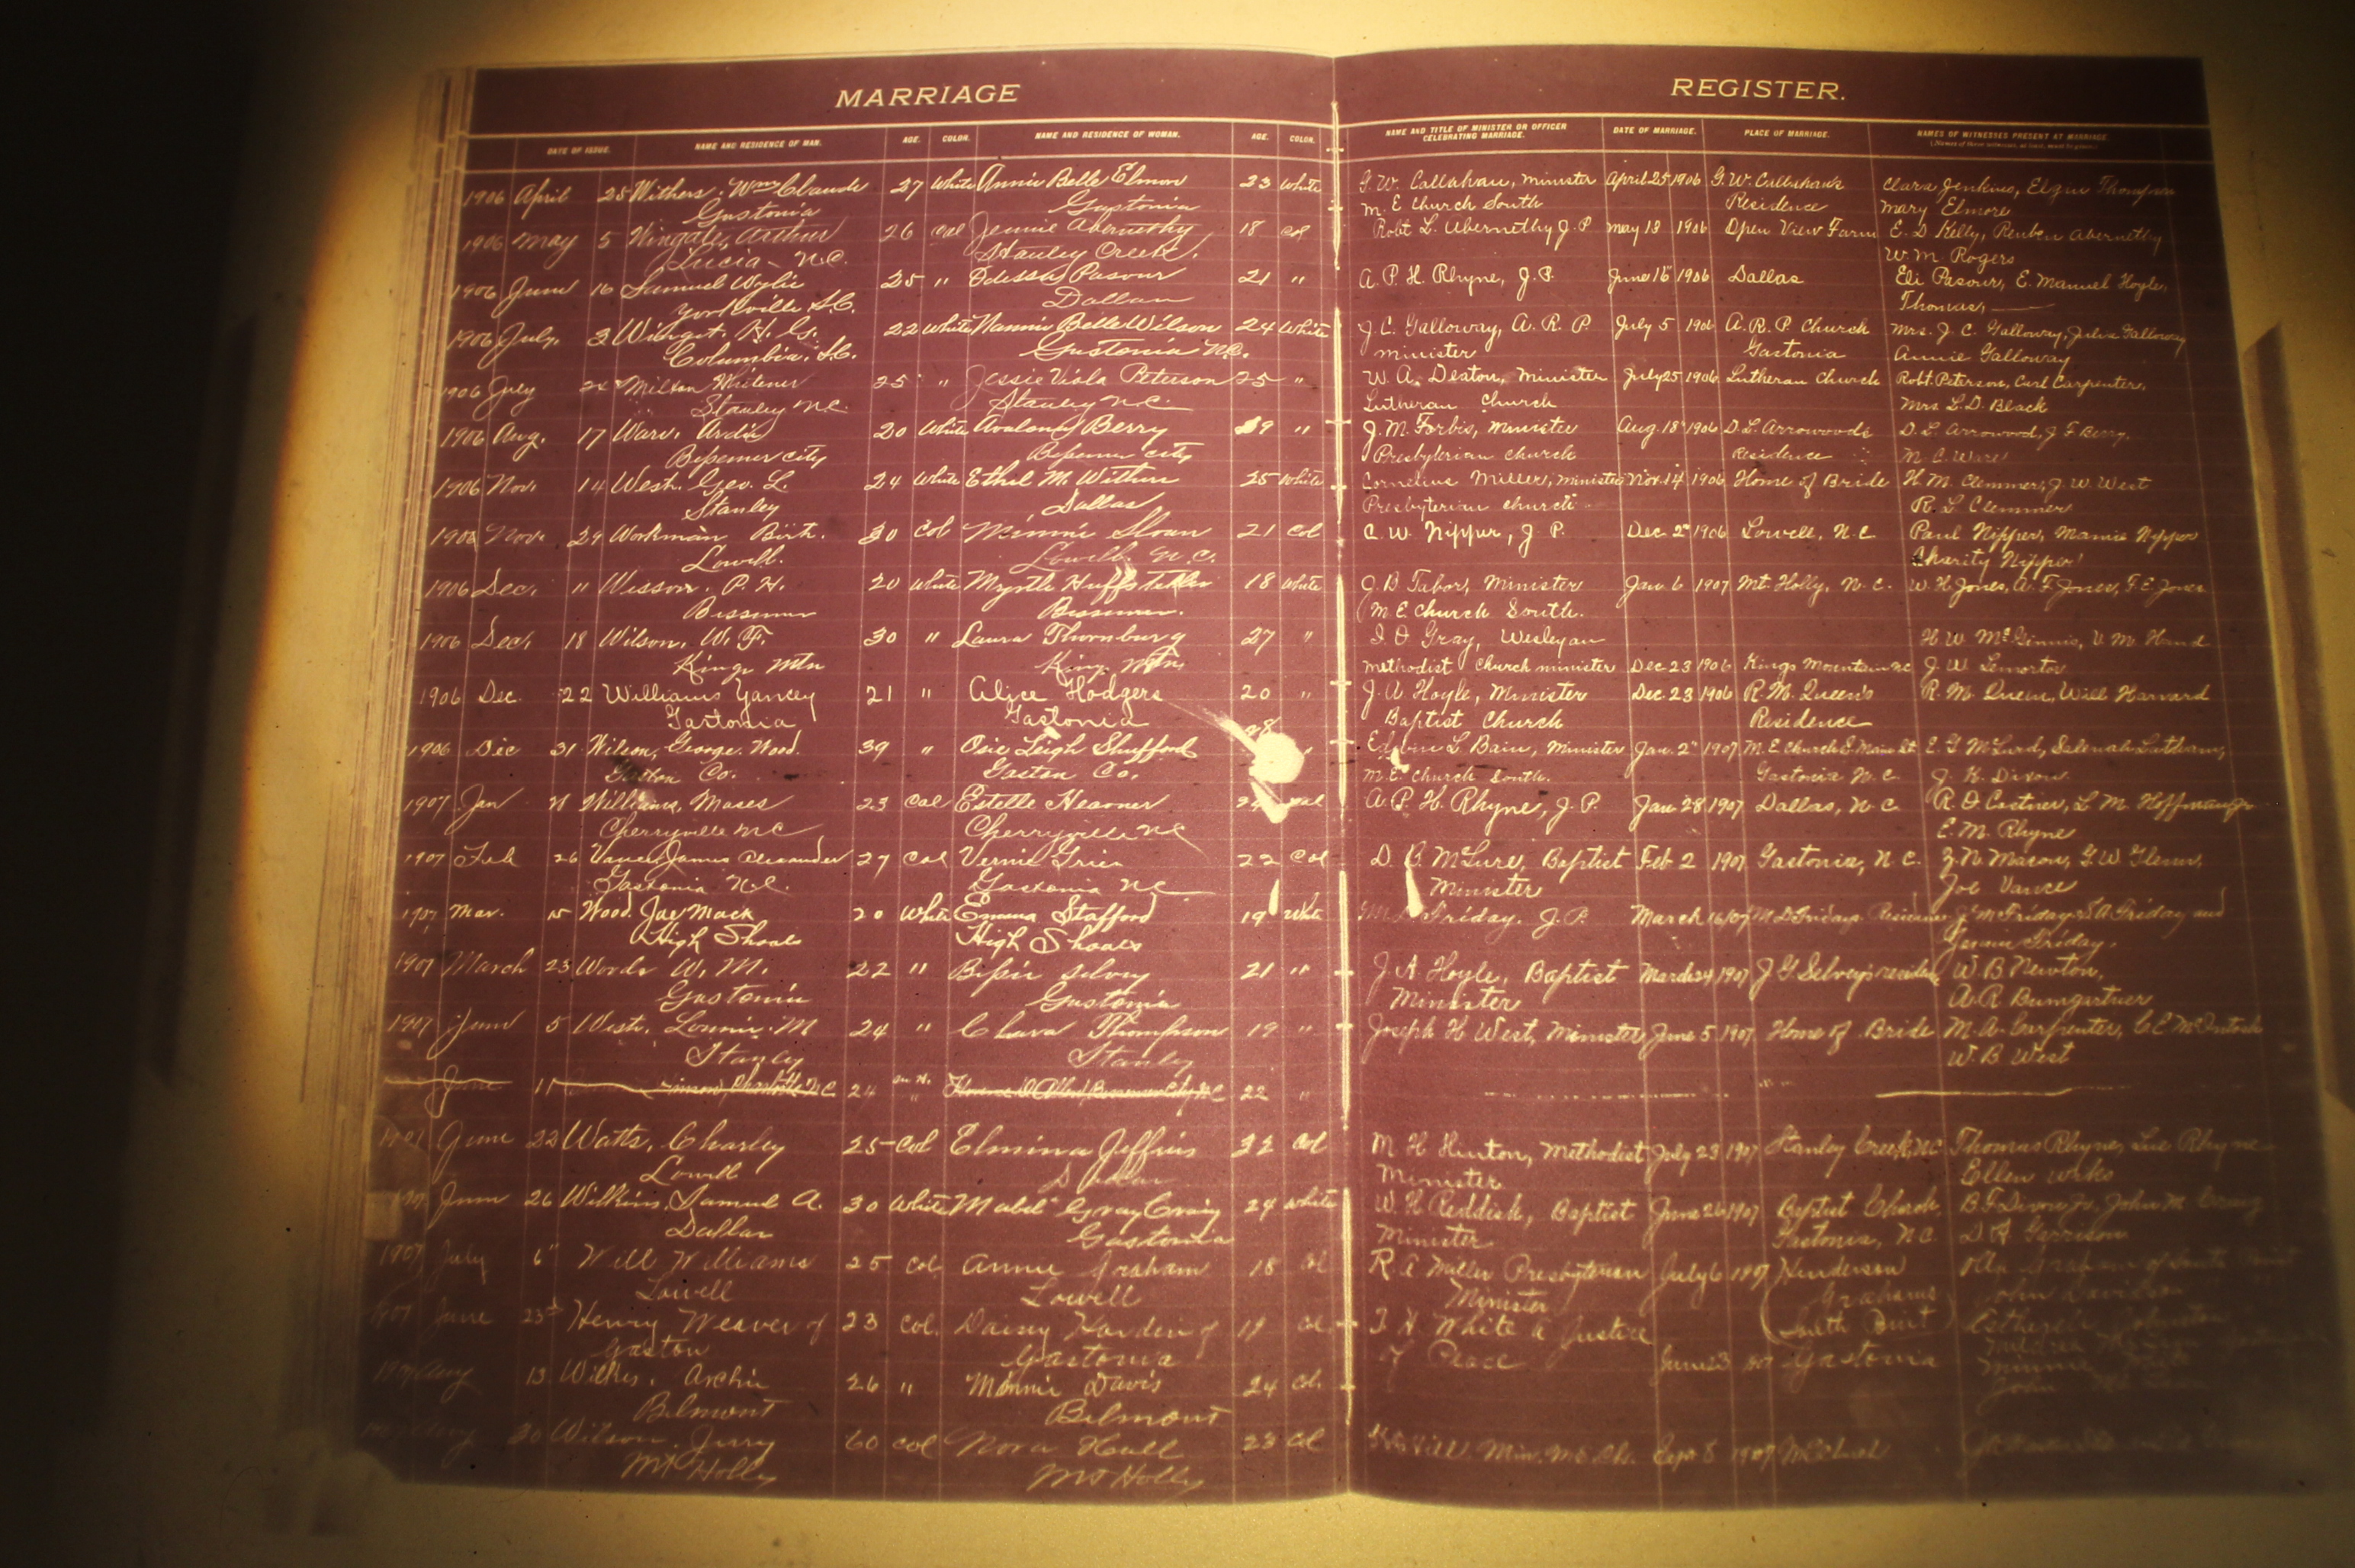 MARRIAGE
REGISTER.
DATE OF ISSUE. NAME AND RESIDENCE OF MAN. AGE. COLOR. NAME AND RESIDENCE OF WOMAN. AGE. COLOR. NAME AND TITLE OF MINISTER OR OFFICER CELEBRATING MARRIAGE. DATE OF MARRIAGE. PLACE OF MARRIAGE. NAMES OF WITNESSES PRESENT AT MARRIAGE.
1906 April 25 Withers, Wm Claude 27 White Annie Belle Elmore 23 White G. W. Callahan, minister April 25 1906 G. W. Callahan's Clara Jenkins, Elzin Thompson
Gastonia Gastonia M. E Church South Residence Mary Elmore
1906 May 5 Wingate, Arthur 26 Col Jennie Abernethy 18 Col Robt L. Abernethy J. P May 13 1906 Open View Farm E. D Kelly, Reuben Abernethy
Lucia N.C. Stanley Creek. W. M. Rogers
1906 June 16 Samuel Wylie 25 " Odessa Pasour 21 " A. P. H. Rhyne, J. P. June 16 1906 Dallas Eli Pasour, E. Manuel Hoyle,
Yorkville S.C. Dallas Thomas,
1906 July. 3 H. G. 22 White Nannie Belle Wilson 24 White J. C. Galloway, A. R. P. July 5 1906 A. R. P. Church Mrs. J. C. Galloway, Julia Galloway
Columbia, S.C. Gastonia N.C. minister Gastonia Annie Galloway
1906 July 24 Milton Whitener 25 " Jessie Viola Peterson 25 " W. A. Deaton, Minister July 25 1906 Lutheran Church Robt. Peterson, Carl Carpenter,
Stanley N.C. Stanley N.C. Lutheran Church Mrs L. D. Black
1906 Aug. 17 Ware, 20 White Berry 19 " J. M. Forbis, Minister Aug. 18 1906 D. L. Arrowoods D. L. Arrowood, J F Berry,
Bessemer City Bessemer City Presbyterian Church Residence M. C. Ware
1906 Nov. 14 West. Geo. L. 24 White Ethel M. Withers 25 White Cornelius Miller, Minister Nov. 14 1906 Home of Bride H. M. Clemmer, J. W. West
Stanley Dallas Presbyterian Church R. L Clemmer
1906 Nov. 29 Workman 30 Col Minnie Sloan 21 Col C. W. Nipper, J. P. Dec 2 1906 Lowell, N. C Paul Nipper, Mamie Nipper
Lowell. Lowell, N. C. Charity Nipper
1906 Dec. " Wisson. P. H. 20 White Myrtle Huffstetler 18 White J. B Tabor, Minister Jan. 6 1907 Mt Holly, N. C. W. H Jones, A. F Jones, F. E. Jones
Bessemer Bessemer. M. E. Church South.
1906 Dec. 18 Wilson, W. F. 30 " Laura Thornburg 27 " Gray, Wesleyan H. W. McGinnis, V. M. Hand
Kings Mtn Kings Mtn. Methodist Church minister Dec 23 1906 Kings Mountain NC J. W.
1906 Dec. 22 Williams Yancey 21 " Alice Hodgers 20 " J. A Hoyle, Minister Dec. 23 1906 R. M. Queen's R. M. Queen, Will Harvard
Gastonia Gastonia Baptist Church Residence
1906 Dec 31 Wilson, George Wood. 39 " Osie Leigh Shufford 28 Edwin L Bain, Minister Jan. 2 1907 M. E Church S. Main St.
Gaston Co. Gaston Co. M. E. Church South. Gastonia N. C. Dixon
1907 Jan Williams, Moses 23 Col Estelle Col A. P. H. Rhyne, J. P. Jan 28 1907 Dallas, N. C R. O Costner, L. M. Hoffman
Cherryville N C Cherryville N C E. M. Rhyne
1907 Feb 26 James Alexander 27 Col 22 Col D. B. McLure, Baptist Feb 2 1907 Gastonia, N C. Z. N. Mason, G. W Glenn,
Gastonia N.C. Gastonia N.C Minister Joe Vance
1907 Mar. 15 Wood. Mack 20 White Emma Stafford 19 White Friday. J. P. March 16 07 M D Fridays Residence J M Friday, S A Friday and
High Shoals High Shoals Friday.
1907 March 23 Woods W. M. 22 " Selvey 21 " J. A. Hoyle, Baptist March 24 1907 J G Selvey's W. B Newton,
Gastonia Gastonia Minister A. R. Bumgartner
1907 June 5 West, Lonnie. M 24 " Thompson 19 " Joseph H West, Minister June 5 1907 Home of Bride M. A. Carpenter, McIntosh
Stanly Stanley W. B West
June 11 Charlotte N C 24 22 "
June 22 Watts, Charley 25 Col Elmina Jeffries 32 Col M H Hinton, Methodist July 23 1907 Stanley Creek, NC Thomas Rhyne, Rhyne
Lowell Minister Ellen
June 26 Wilkins, Samuel A. 30 White Mabel Gray Craig 24 White W. H Reddish, Baptist June 26 1907 Baptist Church, John M. Craig
Dallas Gastonia Minister Gastonia, N.C. D A Garrison
1907 July 6 Will Williams 25 Col Annie Graham 18 Col R. A Miller Presbyterian July 6 1907 Henderson
Lowell Lowell Minister Grahams John Davidson
June 23 Henry Weaver of 23 Col. Daisey Harden of 19 Col J. H. White a Justice (South Point)
Gaston Gastonia of Peace June 23 Gastonia
Aug 13 Wilkes, Archie 26 " Minnie Davis 24 Col.
Belmont Belmont
30 Wilson, Jerry 60 Col Nora 23 Col 1907
Mt Holly Mt Holly